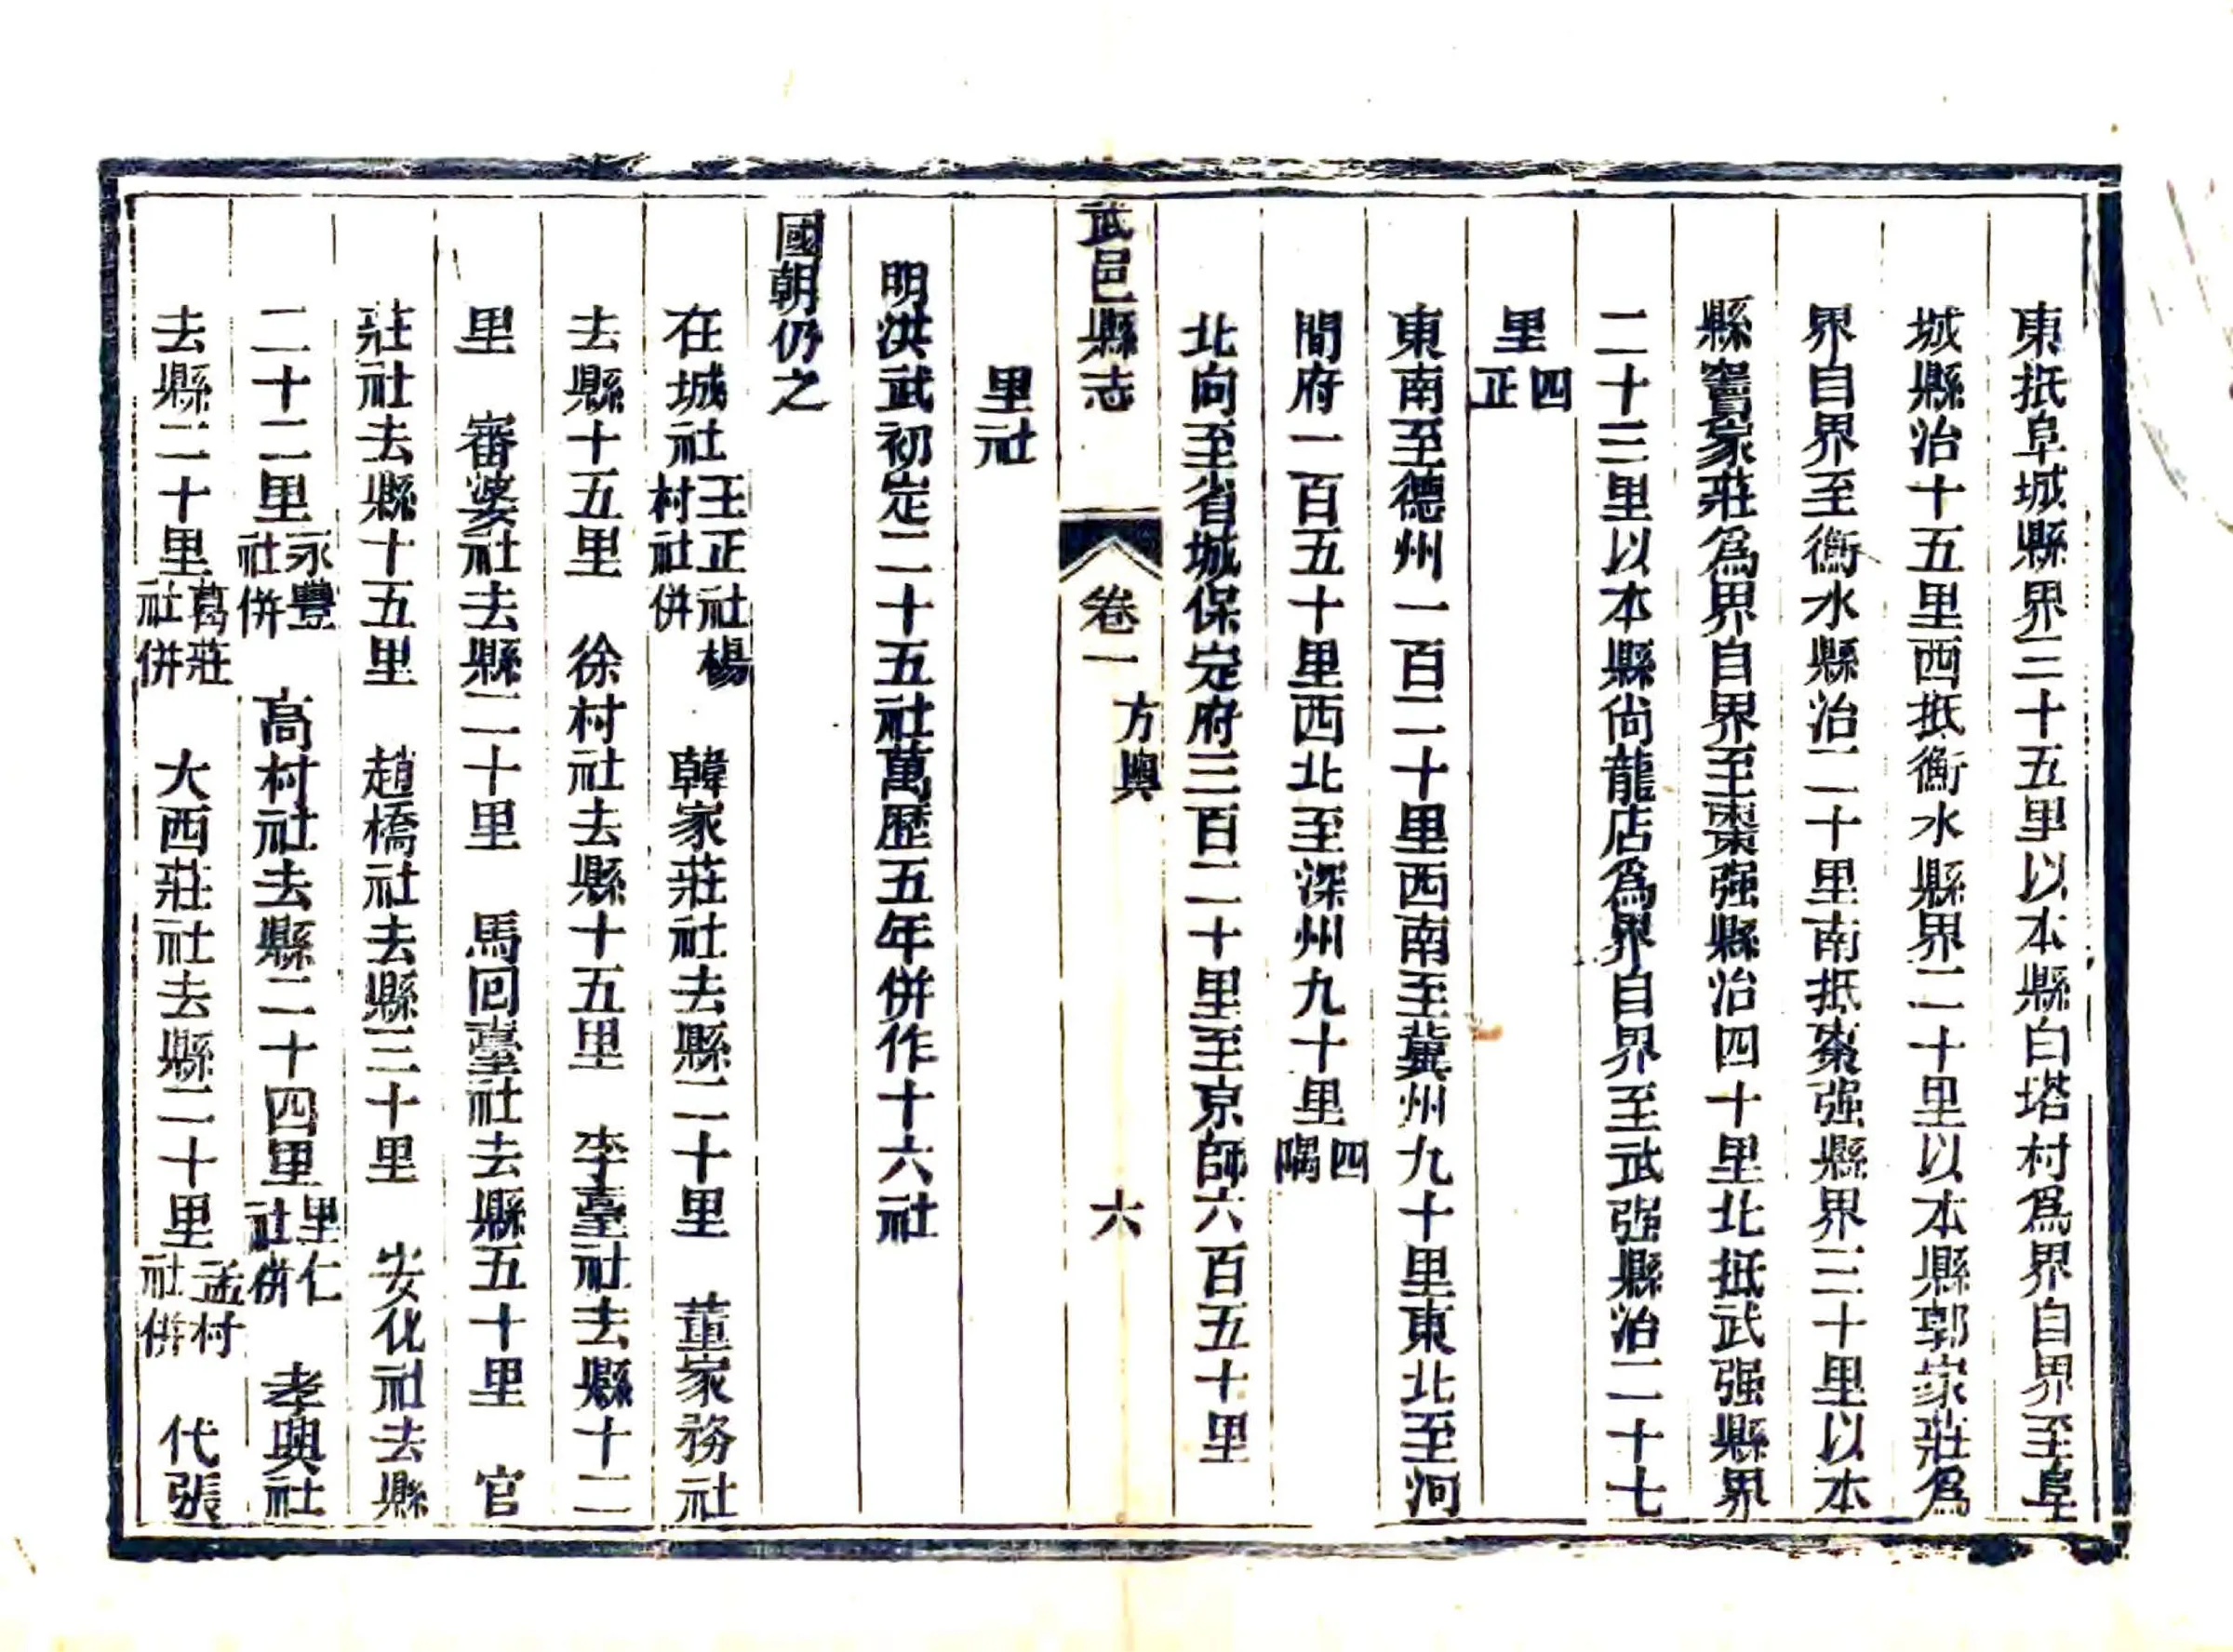 東抵阜城縣界三十五里以本縣白塔村爲界自界至阜
城縣治十五里西抵衡水縣界二十里以本縣郭家莊爲
界自界至衡水縣治二十里南抵棗强縣界三十里以本
縣竇家莊爲界自界至棗强縣治四十里北抵武强縣界
二十三里以本縣尙龍店爲界自界至武强縣治二十七
里四正
東南至德州一百二十里西南至冀州九十里東北至河
間府一百五十里西北至深州九十里四隅
北向至省城保定府三百二十里至京師六百五十里
武邑縣志 卷一 方輿 六
里社
明洪武初定二十五社萬歷五年併作十六社
國朝仍之
在城社王正社楊村社併 韓家莊社去縣二十里 董家務社
去縣十五里 徐村社去縣十五里 李臺社去縣十二
里 審婆社去縣二十里 馬回臺社去縣五十里 官
莊社去縣十五里 趙橋社去縣三十里 安化社去縣
二十二里永豐社併 高村社去縣二十四里里仁社併 孝興社
去縣二十里葛莊社併 大西莊社去縣二十里孟村社併 代張